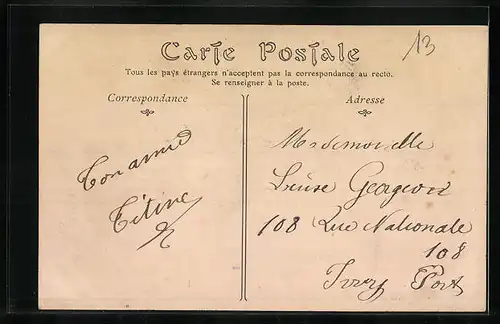 Carte Postale
13
Tous les pays étrangers n'acceptent pas la correspondance au recto.
Se renseigner à la poste.
Correspondance
Ton amie
Titine
Adresse
Mademoiselle
Louise Georgeon
108 Rue Nationale
108
Ivry Port